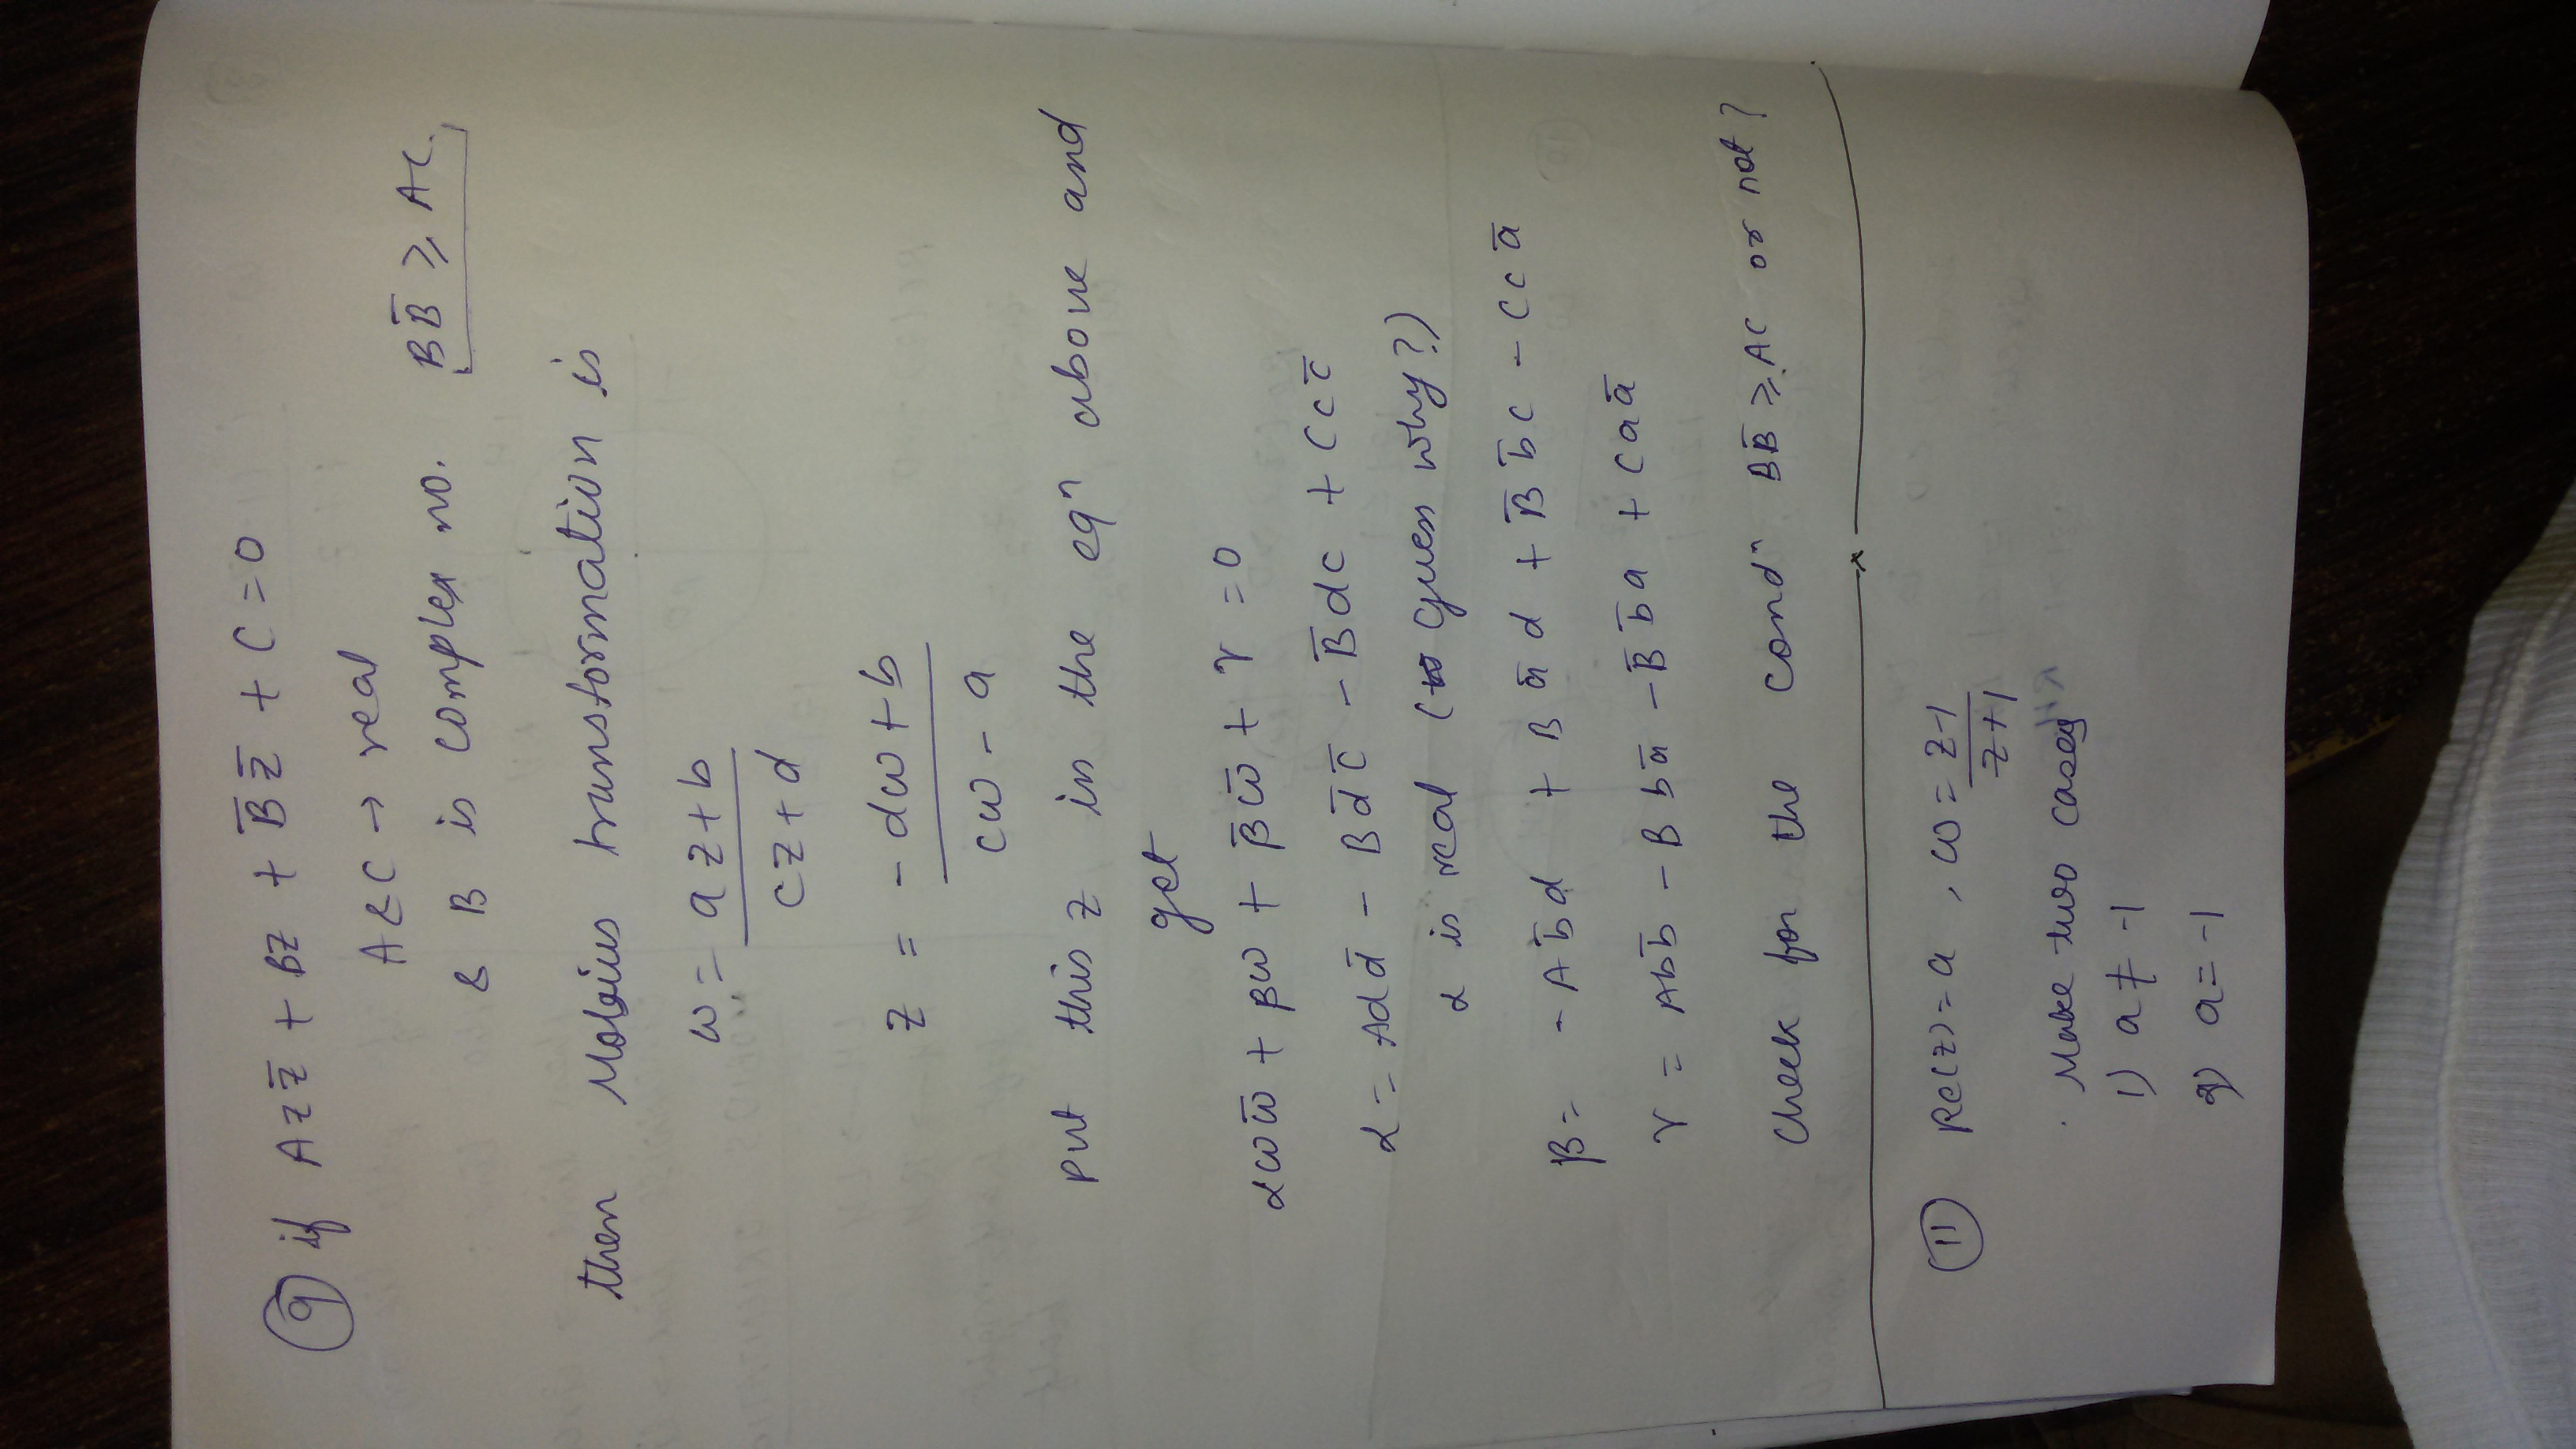 ⑨ if Az z̄ + Bz + B̄ z̄ + C = 0
A & C → real
& B is complex no. B B̄ ≥ AC
then Mobius transformation is
ω = az + b / cz + d
z = -dω + b / cω - a
Put this z in the eqⁿ above and
get
αωω̄ + βω + β̄ω̄ + γ = 0
α = Add̄ - Bd̄c̄ - B̄dc + Ccc̄
α is real (Guess why?)
β = - Ab̄d + Bād + B̄b̄c - Ccā
γ = Abb̄ - Bbā - B̄b̄a + Caā
Check for the condⁿ BB̄ ≥ AC or not?
⑪ Re(z) = a , ω = z-1 / z+1
Make two cases
1) a ≠ -1
2) a = -1